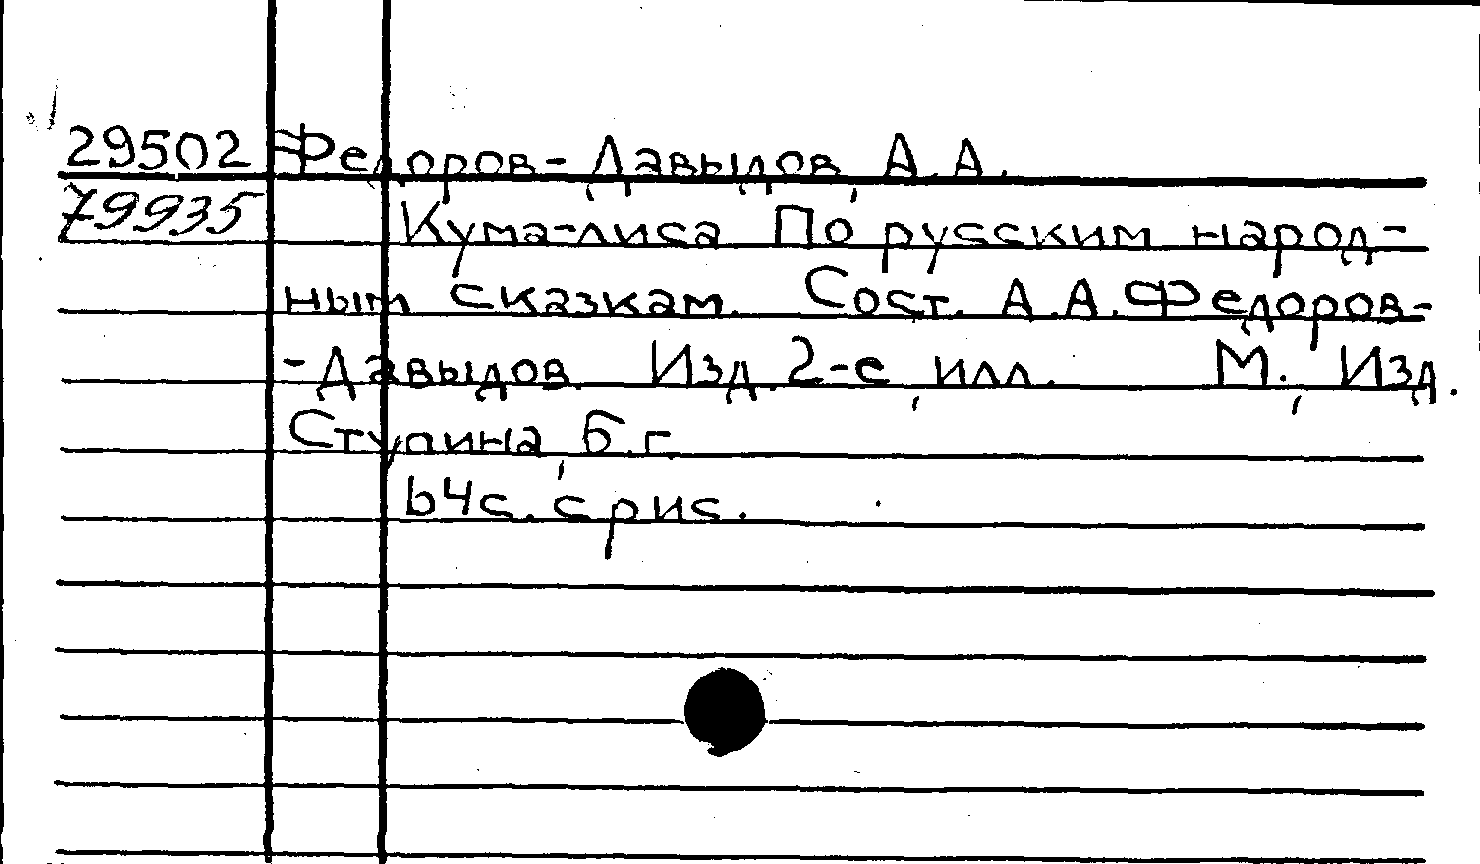 29502 Федоров-Давыдов, А.А.
79935 Кума-лиса По русским народ-
ным сказкам. Сост. А.А.Федоров-
-Давыдов. Изд.2-е, илл. М., Изд.
Ступина, б.г.
64с. с рис.